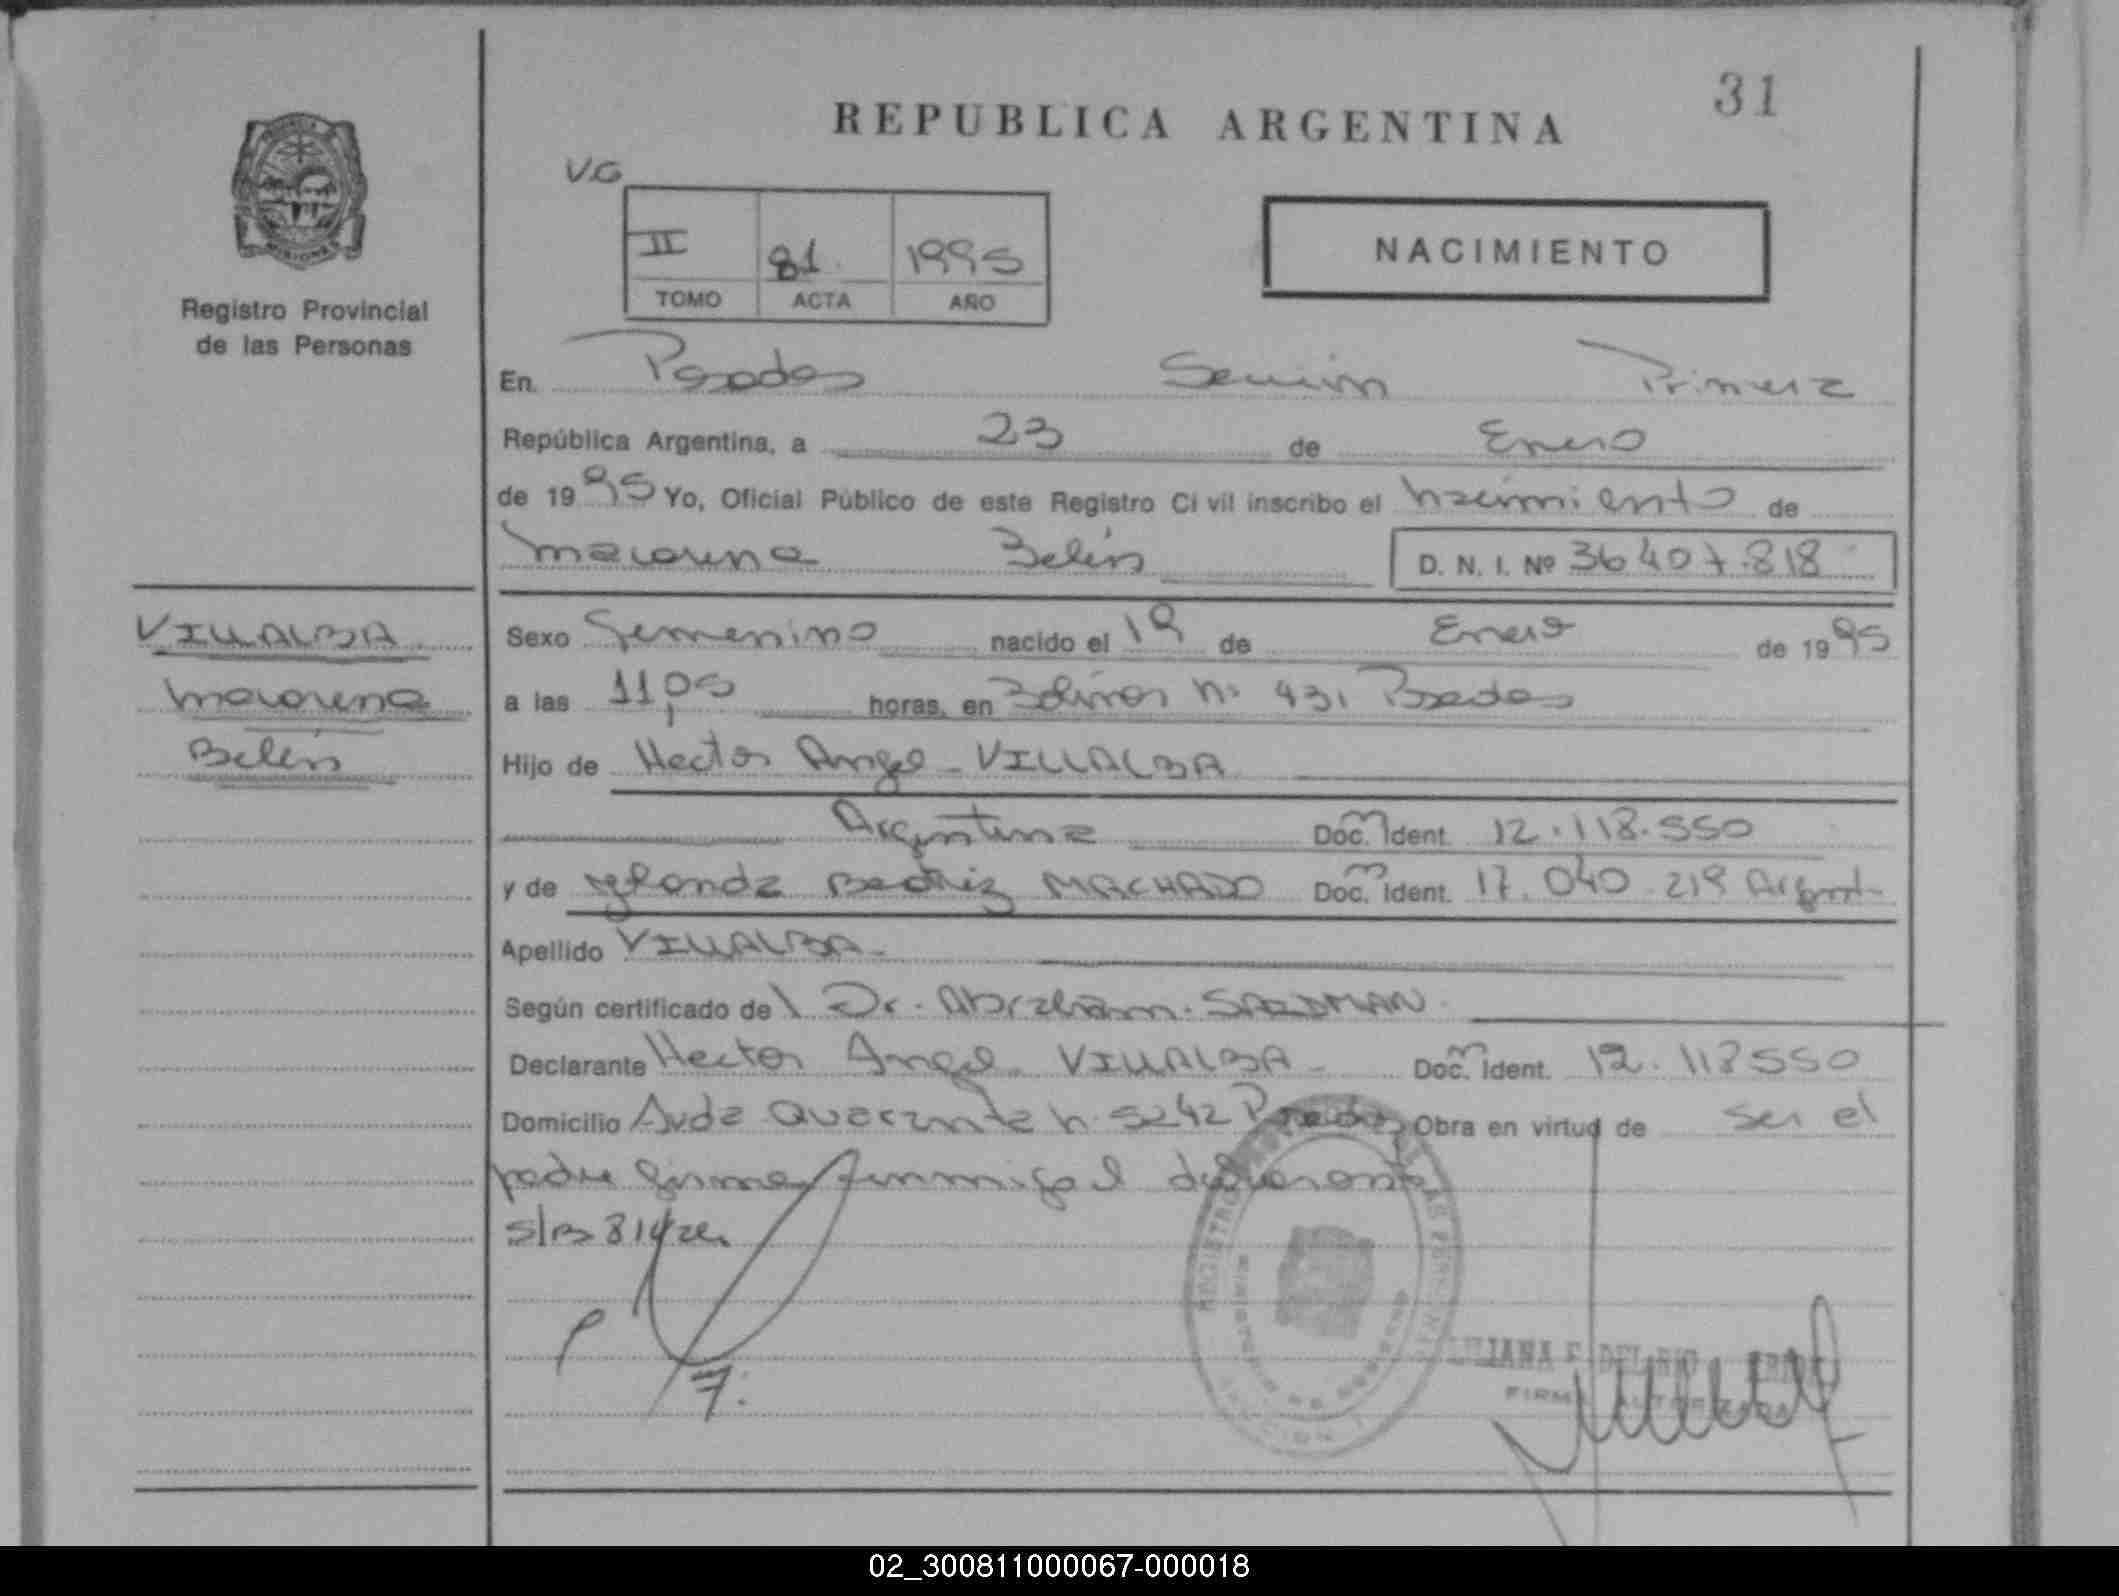 31
REPUBLICA ARGENTINA
V.G
II 81. 1995
TOMO ACTA AÑO
NACIMIENTO
Registro Provincial
de las Personas
En Posadas Sección Primera
República Argentina, a 23 de Enero
de 1995 Yo, Oficial Público de este Registro Civil inscribo el nacimiento de
Macarena Belén D. N. I. Nº 36407.818
VILLALBA
Macarena
Belén
Sexo Femenino nacido el 19 de Enero de 1995
a las 11,05 horas, en Bolívar Nº 431 Posadas
Hijo de Hector Angel - VILLALBA
Argentina Doc. Ident. 12.118.550
y de Beatriz MACHADO Doc. Ident. 17.040.219 Argent-
Apellido VILLALBA -
Según certificado de Dr. Abraham
Declarante Hector Angel VILLALBA - Doc. Ident. 12.118550
Domicilio Avda Quaranta N. 5242 Posadas Obra en virtud de ser el
padre firma conmigo el declarante
7.
FIRMA AUTORIZADA
02_300811000067-000018